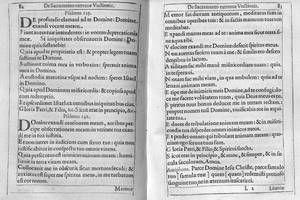 84 De Sacramento extremæ Vnctionis.
Psalmus 129.
DE profundis clamaui ad te Domine: Domine,
exaudi vocem meam.
Fiant aures tuæ intendentes: in vocem deprecationis
meæ.
Si iniquitates obseruaueris Domine: Domine
quis sustinebit?
Quia apud te propitiatio est: & propter legem tuam
sustinui te Domine.
Sustinuit anima mea in verbo eius: sperauit anima
mea in Domino.
A custodia matutina vsque ad noctem: speret Israel
in Domino.
Quia apud Dominum misericordia: & copiosa apud
eum redemptio.
Et ipse redimet Israel: ex omnibus iniquitatibus eius.
Gloria Patri, & Filio, &
Psalmus 142.
DOmine exaudi orationem meam, auribus per-
cipe obsecrationem meam in veritate tua: exaudi
me in tua iustitia.
Et non intres in iudicium cum seruo tuo: quia non
iustificabitur in conspectu tuo omnis viuens.
Quia persecutus est inimicus animam meam: humi-
liauit in terra vitam meam.
Collocauit me in obscuris sicut mortuos sæculi: &
anxiatus est super me spiritus meus, in me turbatum
est cor meum.
Memor
De Sacramento extremæ Vnctionis. 85
Memor fui dierum antiquorum, meditatus sum in
omnibus operibus tuis: in factis manuum tuarum
meditabar.
Expandi manus meas ad te: anima mea sicut terra
sine aqua tibi.
Velociter exaudi me Domine: defecit spiritus meus.
Non auertas faciem tuam à me: & similis ero descen-
dentibus in lacum.
Auditam fac mihi mane misericordiam tuam: quia
in te speraui.
Notam fac mihi viam in qua ambulem: quia ad te
leuaui animam meam.
Eripe me de inimicis meis Domine, ad te confugi: do-
ce me facere voluntatem tuam, quia Deus meus es tu.
Spiritus tuus bonus deducet me in terram rectam:
propter nomen tuum Domine viuificabis me in
æquitate tua.
Educes de tribulatione animam meam: & in miseri-
cordia tua disperdes omnes inimicos meos.
Et perdes omnes qui tribulant animam meam: quo-
niam ego seruus tuus sum.
Gloria Patri, & Filio, & Spiritui sancto.
Sicut erat in principio, & nunc, & semper, & in sæcula
sæculorum. Amen.
Antiphona. Parce Domine Iesu Christe, parce famulo
tuo
L 2 Litaniæ